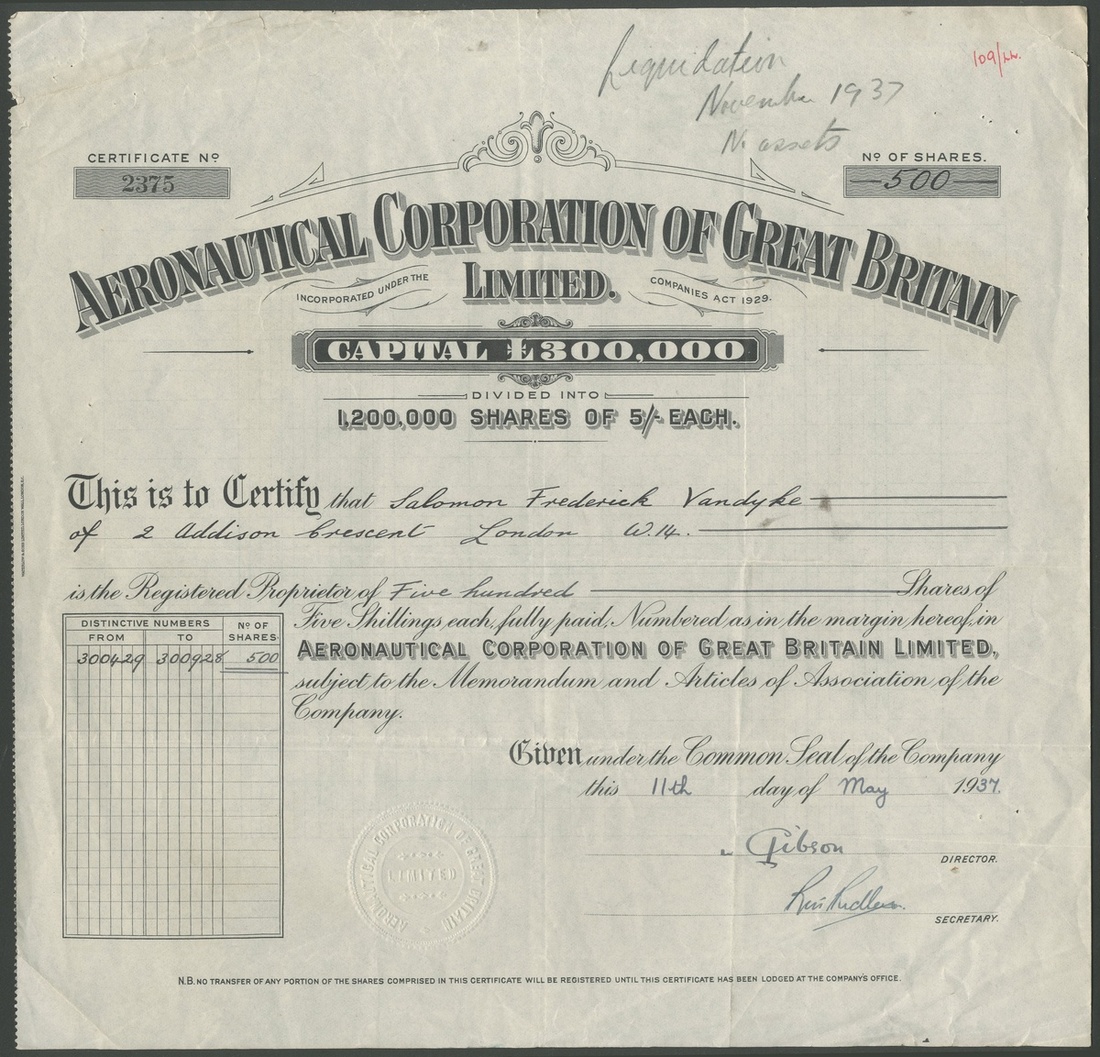 Liquidation
November 1937
No assets
109/
CERTIFICATE Nº
2375
Nº OF SHARES.
500
AERONAUTICAL CORPORATION OF GREAT BRITAIN
LIMITED.
INCORPORATED UNDER THE
COMPANIES ACT 1929.
CAPITAL £300,000
DIVIDED INTO
1,200,000 SHARES OF 5/- EACH.
This is to Certify that Salomon Frederick Vandyke
of 2 Addison Crescent London W.14.
is the Registered Proprietor of Five hundred Shares of
Five Shillings each, fully paid, Numbered as in the margin hereof, in
AERONAUTICAL CORPORATION OF GREAT BRITAIN LIMITED,
subject to the Memorandum and Articles of Association of the
Company.
DISTINCTIVE NUMBERS
FROM TO
Nº OF SHARES.
300429 300928 500
Given under the Common Seal of the Company
this 11th day of May 1937.
Gibson
DIRECTOR.
SECRETARY.
AERONAUTICAL CORPORATION OF GREAT BRITAIN
LIMITED
N.B. NO TRANSFER OF ANY PORTION OF THE SHARES COMPRISED IN THIS CERTIFICATE WILL BE REGISTERED UNTIL THIS CERTIFICATE HAS BEEN LODGED AT THE COMPANY'S OFFICE.